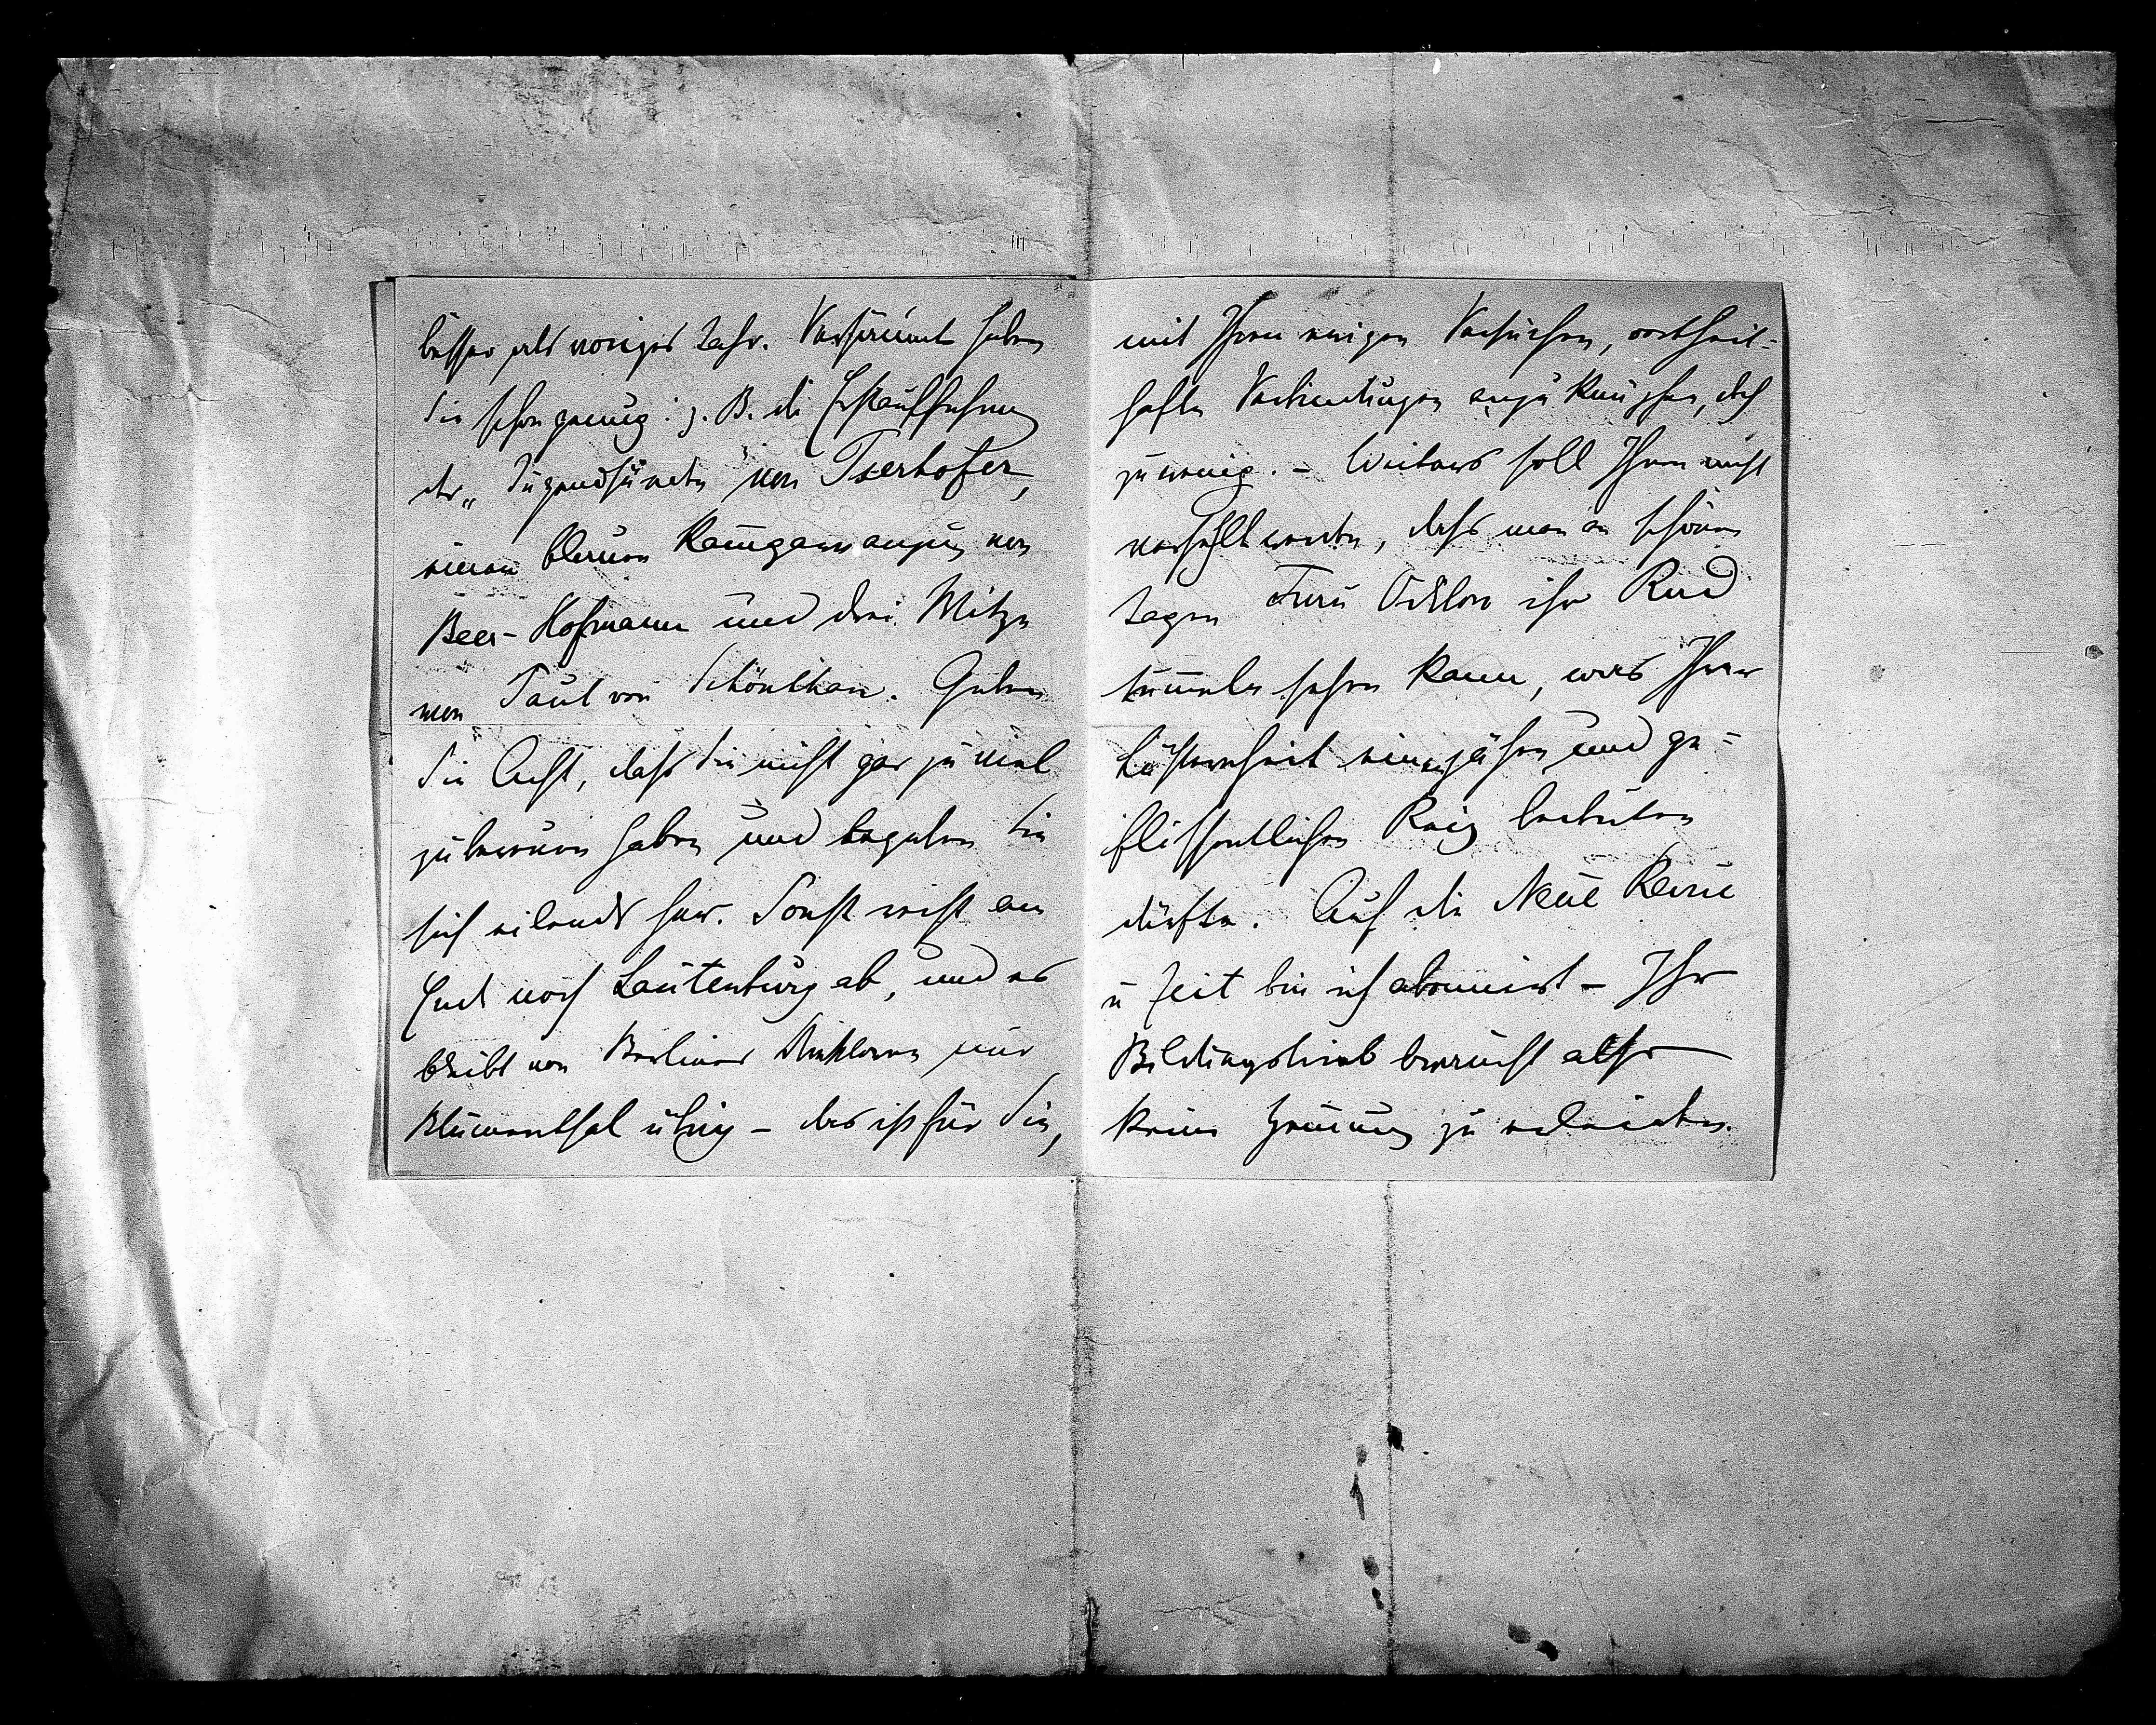 besser als voriges Jahr. Versäumt haben
Sie schon genug: z. B. die Erstaufführung
der „Jugendsünden“ von Iserhofer,
einen blauen Kammgarnanzug von
Beer-Hofmann und drei Witze
von Paul von Schönthan. Geben
Sie Acht, daß Sie nicht gar zu viel
zu bereuen haben und begeben Sie
sich eilends her. Sonst reist am
End noch Lautenburg ab, und es
bleibt von Berliner Direktoren nur
Blumenthal übrig – das ist für Sie,
mit Ihren ewigen Versuchen, vortheil-
hafte Verbindungen anzuknüpfen, doch
zu wenig. – Weiters soll Ihnen nicht
verhehlt werden, daß man an schönen
Tagen Frau Odilon ihr Rad
tummeln sehen kann, was Ihrer
Lüsternheit einen jähen und ge-
flissentlichen Reiz bedeuten
dürfte. Auf die Neue Revue
u Zeit bin ich abonnirt – Ihr
Bildungstrieb braucht also
keine Hemmung zu erleiden.